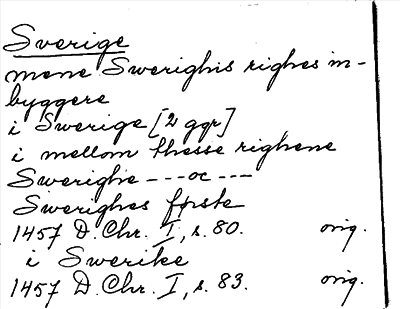 Sverige
mene Swerighis righes in-
byggere
i Swerige [2 ggr]
i mellom thesse righene
Swerighe ---oc ---
Swerighes første
1457 D. Chr. I, s. 80. orig.
i Swerike
1457 D. Chr. I, s. 83. orig.